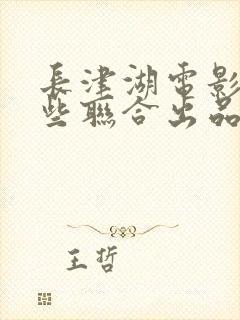 長津湖電影
些聯合出品
王哲